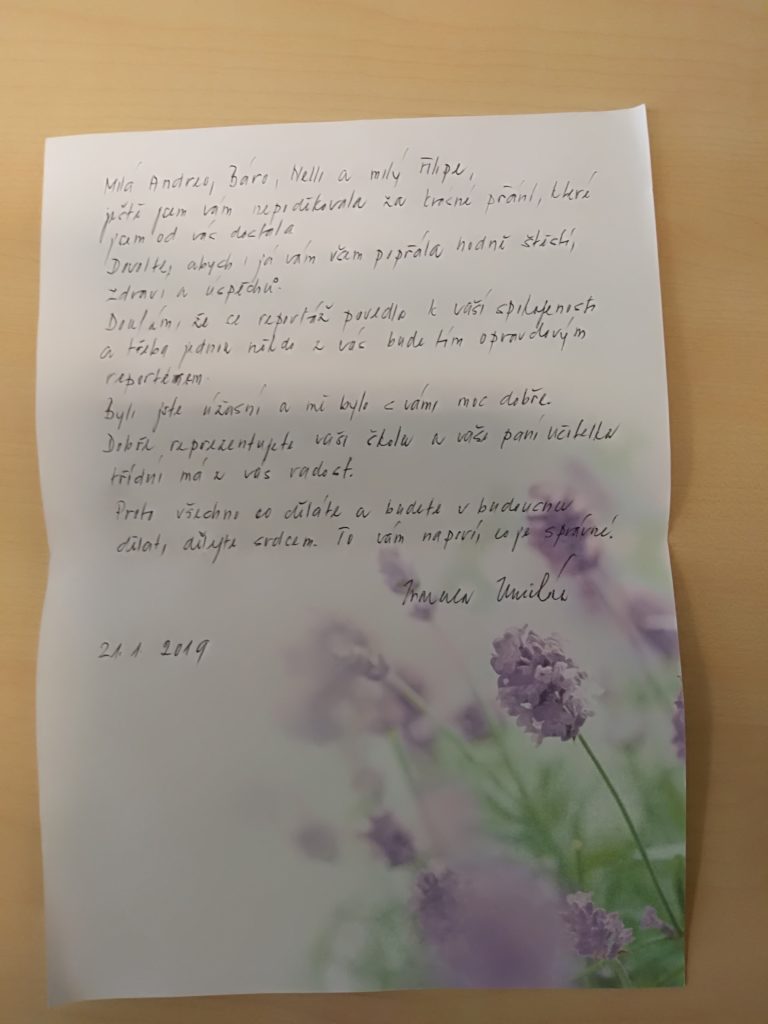 Milá Andreo, Báro, Nelli a milý Filipe,
ještě jsem vám nepoděkovala za krásné přání, které
jsem od vás dostala
Dovolte, abych i já vám všem popřála hodně štěstí,
zdraví a úspěchů.
Doufám, že se reportáž povedla k vaší spokojenosti
a třeba jednou někdo z vás bude tím opravdovým
reportérem.
Byli jste úžasní a mě bylo s vámi moc dobře.
Dobře reprezentujete vaši školu a vaše paní učitelka
třídní má z vás radost.
Proto všechno co děláte a budete v budoucnu
dělat, dělejte srdcem. To vám napoví, co je správné.
21. 1. 2019